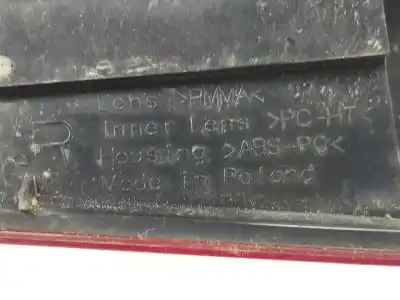 Lens >PMMA<
Inner Lens >PC-HT<
Housing >ABS-PC<
Made in Poland